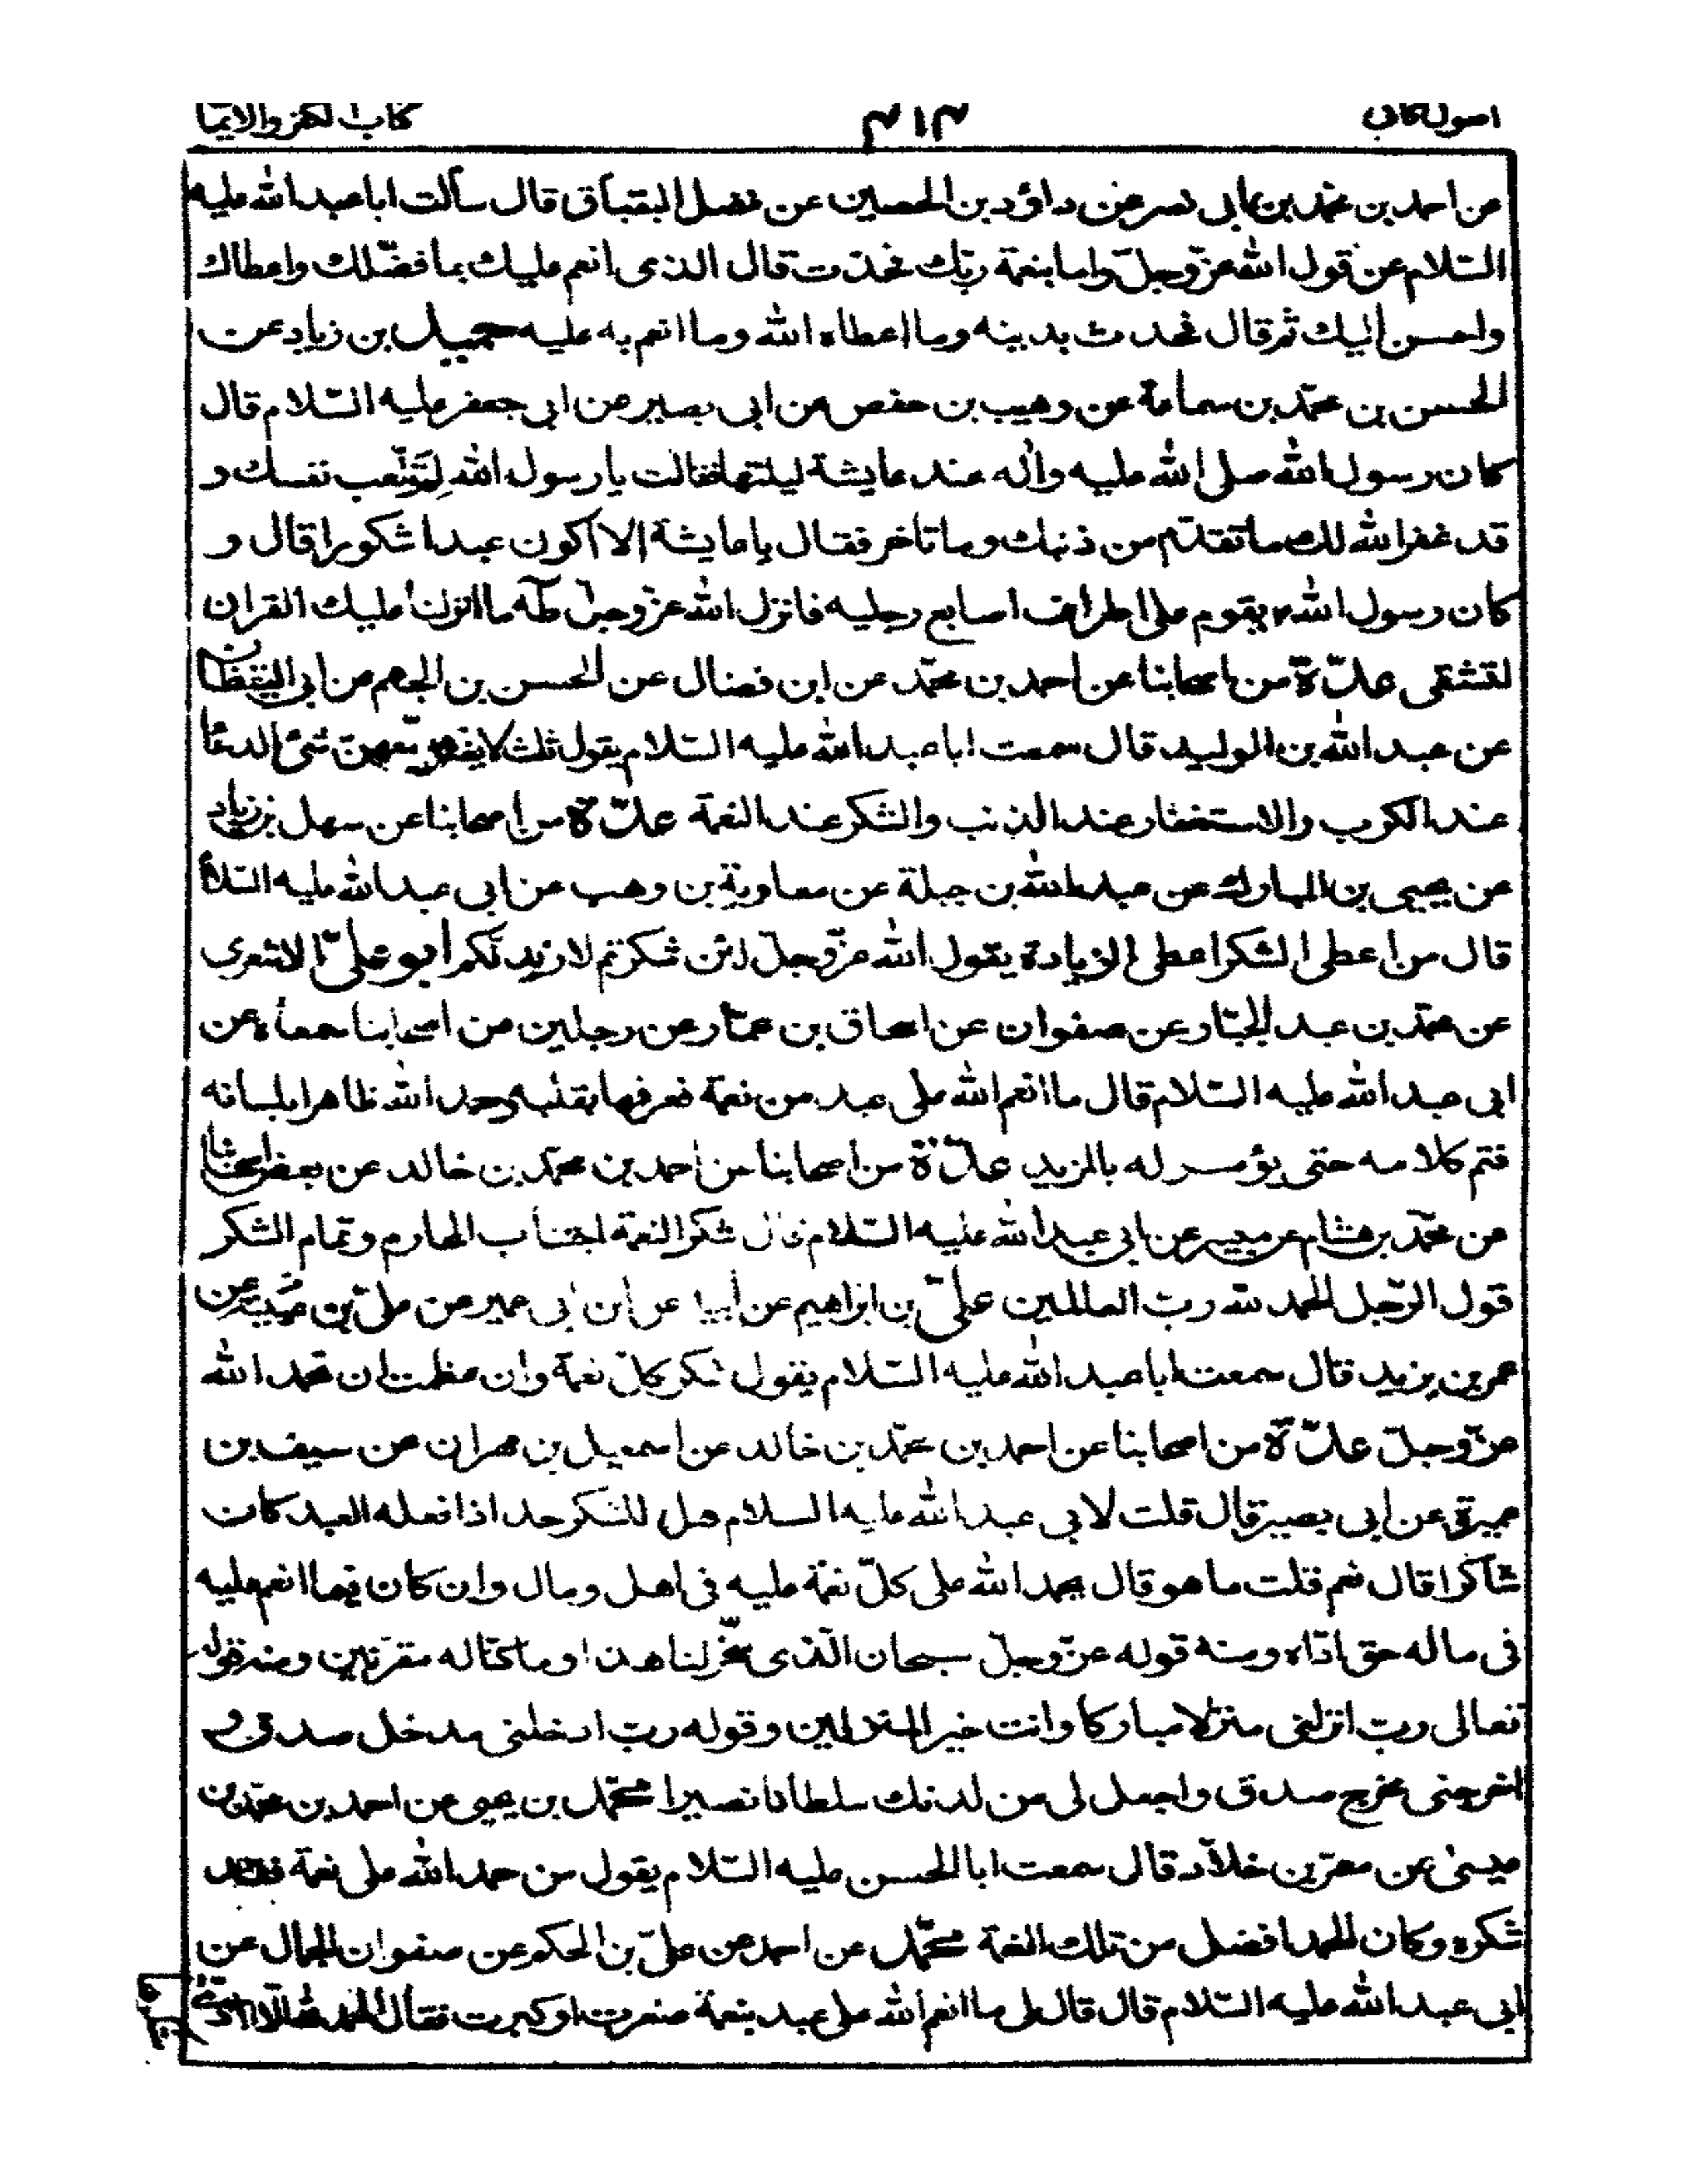 اصول كافى ۴۱۴ كتاب الكفر والايما
عن احمد بن محمد بن ابى نصر عن داؤد بن الحصين عن فضل البقباق قال سألت اباعبد الله عليه
السّلام عن قول الله عزّوجلّ واما بنعمة ربّك فحدّث قال الذى انعم عليك بما فضّلك واعطاك
واحسن اليك ثم قال فحدث بدينه وما اعطاه الله وما انعم به عليه حميد بن زياد عن
الحسن بن محمّد بن سماعة عن وهيب بن حفص عن ابى بصير عن ابى جعفر عليه السّلام قال
كان رسول الله صلى الله عليه واٰله عند عايشة ليلتها فقالت يا رسول الله لِمَ تتعب نفسك و
قد غفر الله لك ما تقدّم من ذنبك وما تاخر فقال يا عايشة الا اكون عبدا شكورا قال و
كان رسول الله ص يقوم على اطراف اصابع رجليه فانزل الله عزّوجلّ طٰه ما انزلنا عليك القران
لتشقى عدّة من اصحابنا عن احمد بن محمّد عن ابن فضال عن الحسن بن الجهم عن ابى اليقظان
عن عبد الله بن الوليد قال سمعت ابا عبد الله عليه السّلام يقول ثلث لا يضرّ معهنّ شئ الدعا
عند الكرب والاستغفار عند الذنب والشكر عند النعمة عدّة من اصحابنا عن سهل بن زياد
عن يحيى بن المبارك عن عبد الله بن جبلة عن معاوية بن وهب عن ابى عبد الله عليه السّلا
قال من اعطى الشكر اعطى الزيادة يقول الله عزّوجلّ لئن شكرتم لازيدنّكم ابو علىّ الاشعرى
عن محمّد بن عبد الجبّار عن صفوان عن اسحاق بن عمّار عن رجلين من اصحابنا سمعاه عن
ابى عبد الله عليه السّلام قال ما انعم الله على عبد من نعمة فعرفها بقلبه وحمد الله ظاهرا بلسانه
فتم كلامه حتى يؤمر له بالمزيد عدّة من اصحابنا عن احمد بن محمّد بن خالد عن بعض اصحابنا
عن محمّد بن هشام عن ميسر عن ابى عبد الله عليه السّلام قال شكر النعمة اجتناب المحارم وتمام الشكر
قول الرّجل الحمد لله ربّ العالمين علىّ بن ابراهيم عن ابيه عن ابن ابى عمير عن علىّ بن عيينة عن
عمر بن يزيد قال سمعت ابا عبد الله عليه السّلام يقول شكر كلّ نعمة وان عظمت ان تحمد الله
عزّوجلّ عدّة من اصحابنا عن احمد بن محمّد بن خالد عن اسمعيل بن مهران عن سيف بن
عميرة عن ابى بصير قال قلت لابى عبد الله عليه السلام هل للشكر حد اذا فعله العبد كان
شاكرا قال نعم قلت ما هو قال يحمد الله على كلّ نعمة عليه فى اهل ومال وان كان فيما انعم عليه
فى ماله حق ادّاه ومنه قوله عزّوجلّ سبحان الّذى سخّر لنا هذا وما كنّا له مقرنين ومنه قوله
تعالى رب انزلنى منزلا مباركا وانت خير المنزلين وقوله رب ادخلنى مدخل صدق و
اخرجنى مخرج صدق واجعل لى من لدنك سلطانا نصيرا محمّد بن يحيى عن احمد بن محمّد بن
عيسىٰ عن معمّر بن خلاّد قال سمعت ابا الحسن عليه السّلام يقول من حمد الله على نعمة فقد
شكره وكان الحمد افضل من تلك النعمة محمّد عن احمد عن علىّ بن الحكم عن صفوان الجمال عن
ابى عبد الله عليه السّلام قال قال لى ما انعم الله على عبد بنعمة صغرت او كبرت فقال الحمد لله الّا ادّى